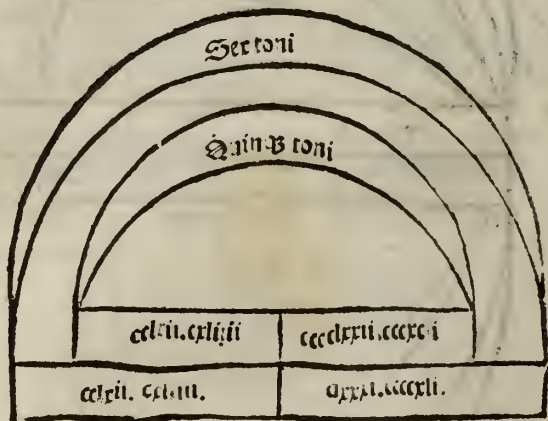 Sex toni
Quinqꝫ toni
cclxii.cxliiii cccclxxii.cccxcii
cclxii. cxliiii. dxxxi.ccccxli.